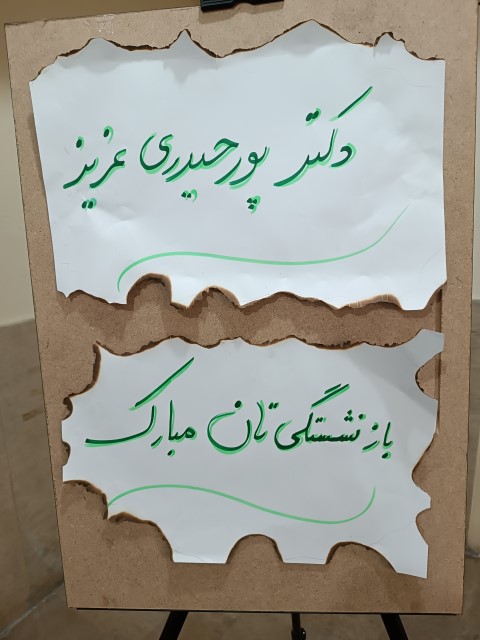 دکتر پورحیدری عزیز
بازنشستگی تان مبارک